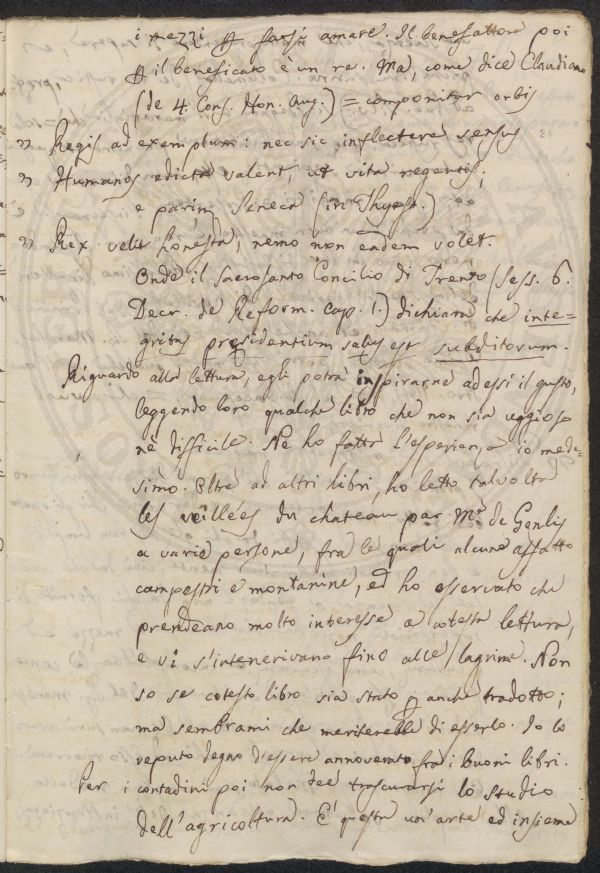 i mezzi ꝑ farsi amare. Il benefattore poi
ꝑ il beneficato è un re. Ma, come dice Claudiano
(de 4. Cons. Hon. Aug.) = componitur orbis
" Regis ad exemplum: nec sic inflectere sensus
" Humanos edicta valent, ut vita regentis;
e parim. Seneca (in Thyest.)
" Rex velit honesta, nemo non eadem volet.
Onde il sacrosanto Concilio di Trento (Sess. 6.
Decr. de Reform. cap. 1.) dichiara che inte=
gritas presidentium salus est subditorum.
Riguardo alla lettura, egli potrà inspirarne ad essi il gusto,
leggendo loro qualche libro che non sia uggioso
nè difficile. Ne ho fatta l'esperienza io mede=
simo. Oltre ad altri libri, ho letto talvolta
les veillées du chateau par Mᵉ de Genlis
a varie persone, fra le quali alcune affatto
campestri e montanine, ed ho osservato che
prendeano molto interesse a cotesta lettura,
e vi s'intenerivano fino alle lagrime. Non
so se cotesto libro sia stato ꝑ anche tradotto;
ma sembrami che meriterebbe di esserlo. Io lo
reputo degno d'essere annoverato fra i buoni libri.
Per i contadini poi non dee trascurarsi lo studio
dell'agricoltura. È questa un'arte ed insieme